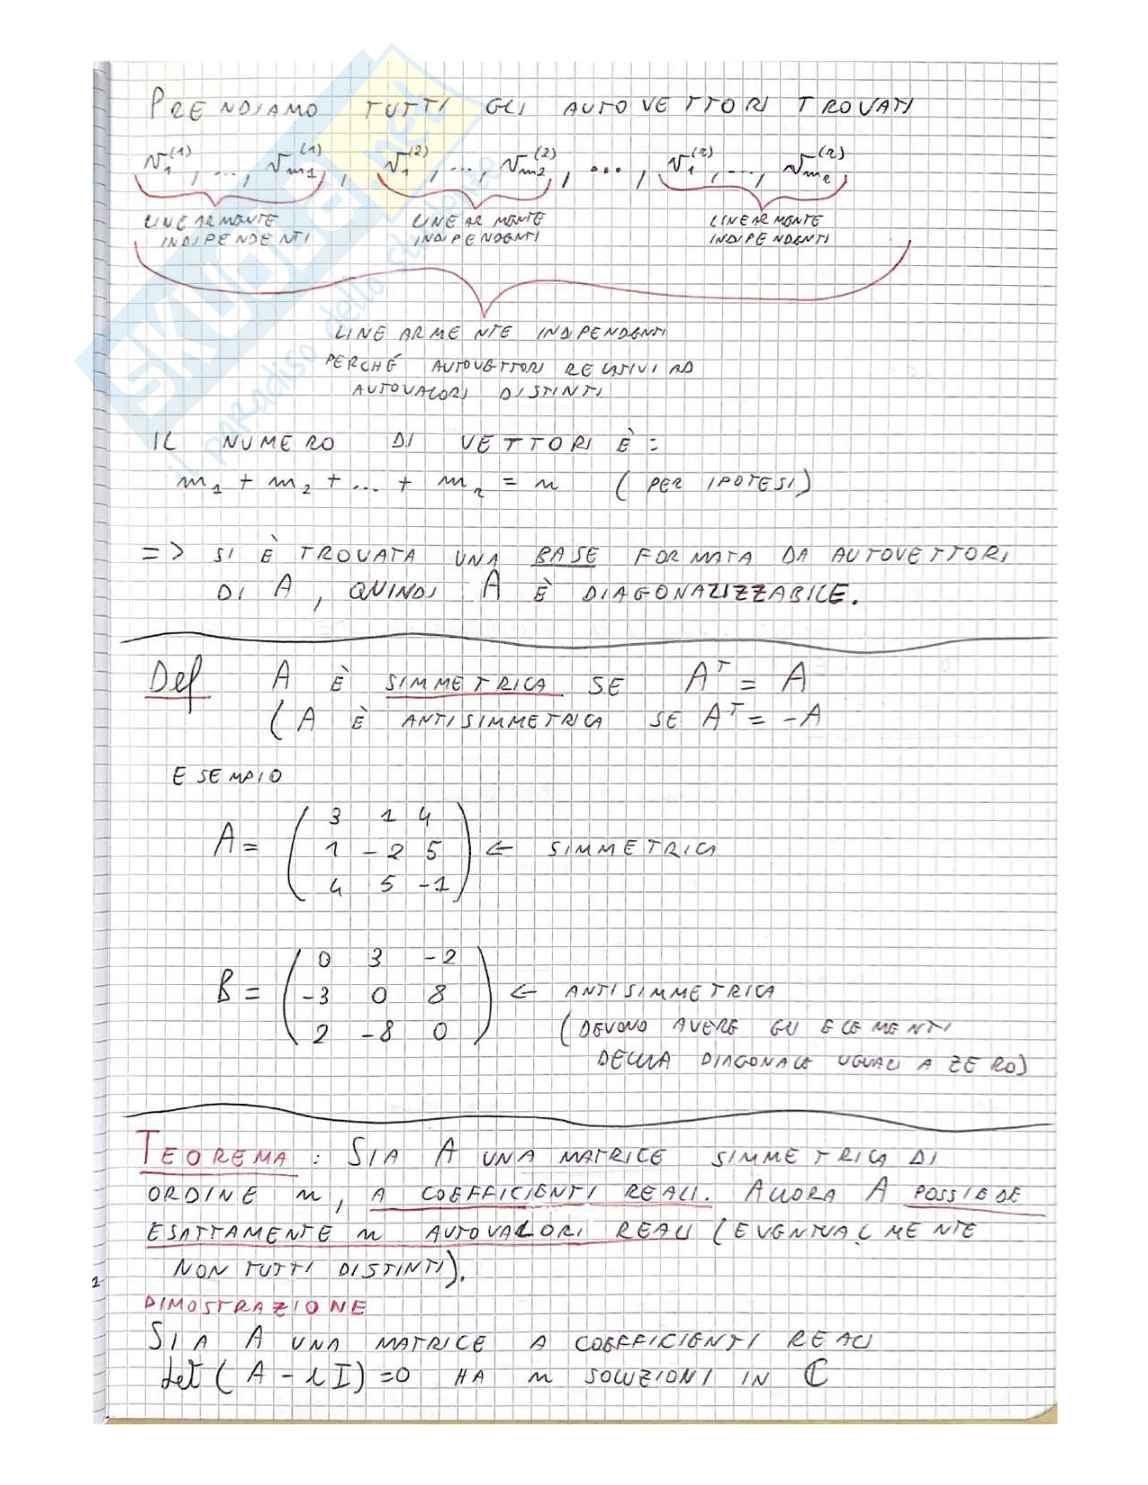 PRENDIAMO TUTTI GLI AUTOVETTORI TROVATI
v₁⁽¹⁾, ..., vₘ₁⁽¹⁾, v₁⁽²⁾, ..., vₘ₂⁽²⁾, ..., v₁⁽ʳ⁾, ..., vₘᵣ⁽ʳ⁾,
LINEARMENTE INDIPENDENTI
LINEARMENTE INDIPENDENTI
LINEARMENTE INDIPENDENTI
LINEARMENTE INDIPENDENTI
PERCHÉ AUTOVETTORI RELATIVI AD
AUTOVALORI DISTINTI
IL NUMERO DI VETTORI È:
m₁ + m₂ + ... + mᵣ = n (PER IPOTESI)
=> SI È TROVATA UNA BASE FORMATA DA AUTOVETTORI
DI A, QUINDI A È DIAGONALIZZABILE.
Def A È SIMMETRICA SE Aᵀ = A
(A È ANTISIMMETRICA SE Aᵀ = -A
ESEMPIO
3 1 4
A = 1 -2 5 ← SIMMETRICA
4 5 -1
0 3 -2
B = -3 0 8 ← ANTISIMMETRICA
2 -8 0 (DEVONO AVERE GLI ELEMENTI
DELLA DIAGONALE UGUALI A ZERO)
TEOREMA: SIA A UNA MATRICE SIMMETRICA DI
ORDINE n, A COEFFICIENTI REALI. ALLORA A POSSIEDE
ESATTAMENTE n AUTOVALORI REALI (EVENTUALMENTE
NON TUTTI DISTINTI).
DIMOSTRAZIONE
SIA A UNA MATRICE A COEFFICIENTI REALI
det(A - λI) = 0 HA n SOLUZIONI IN ℂ
SKUOLA.net
il paradiso dello studente